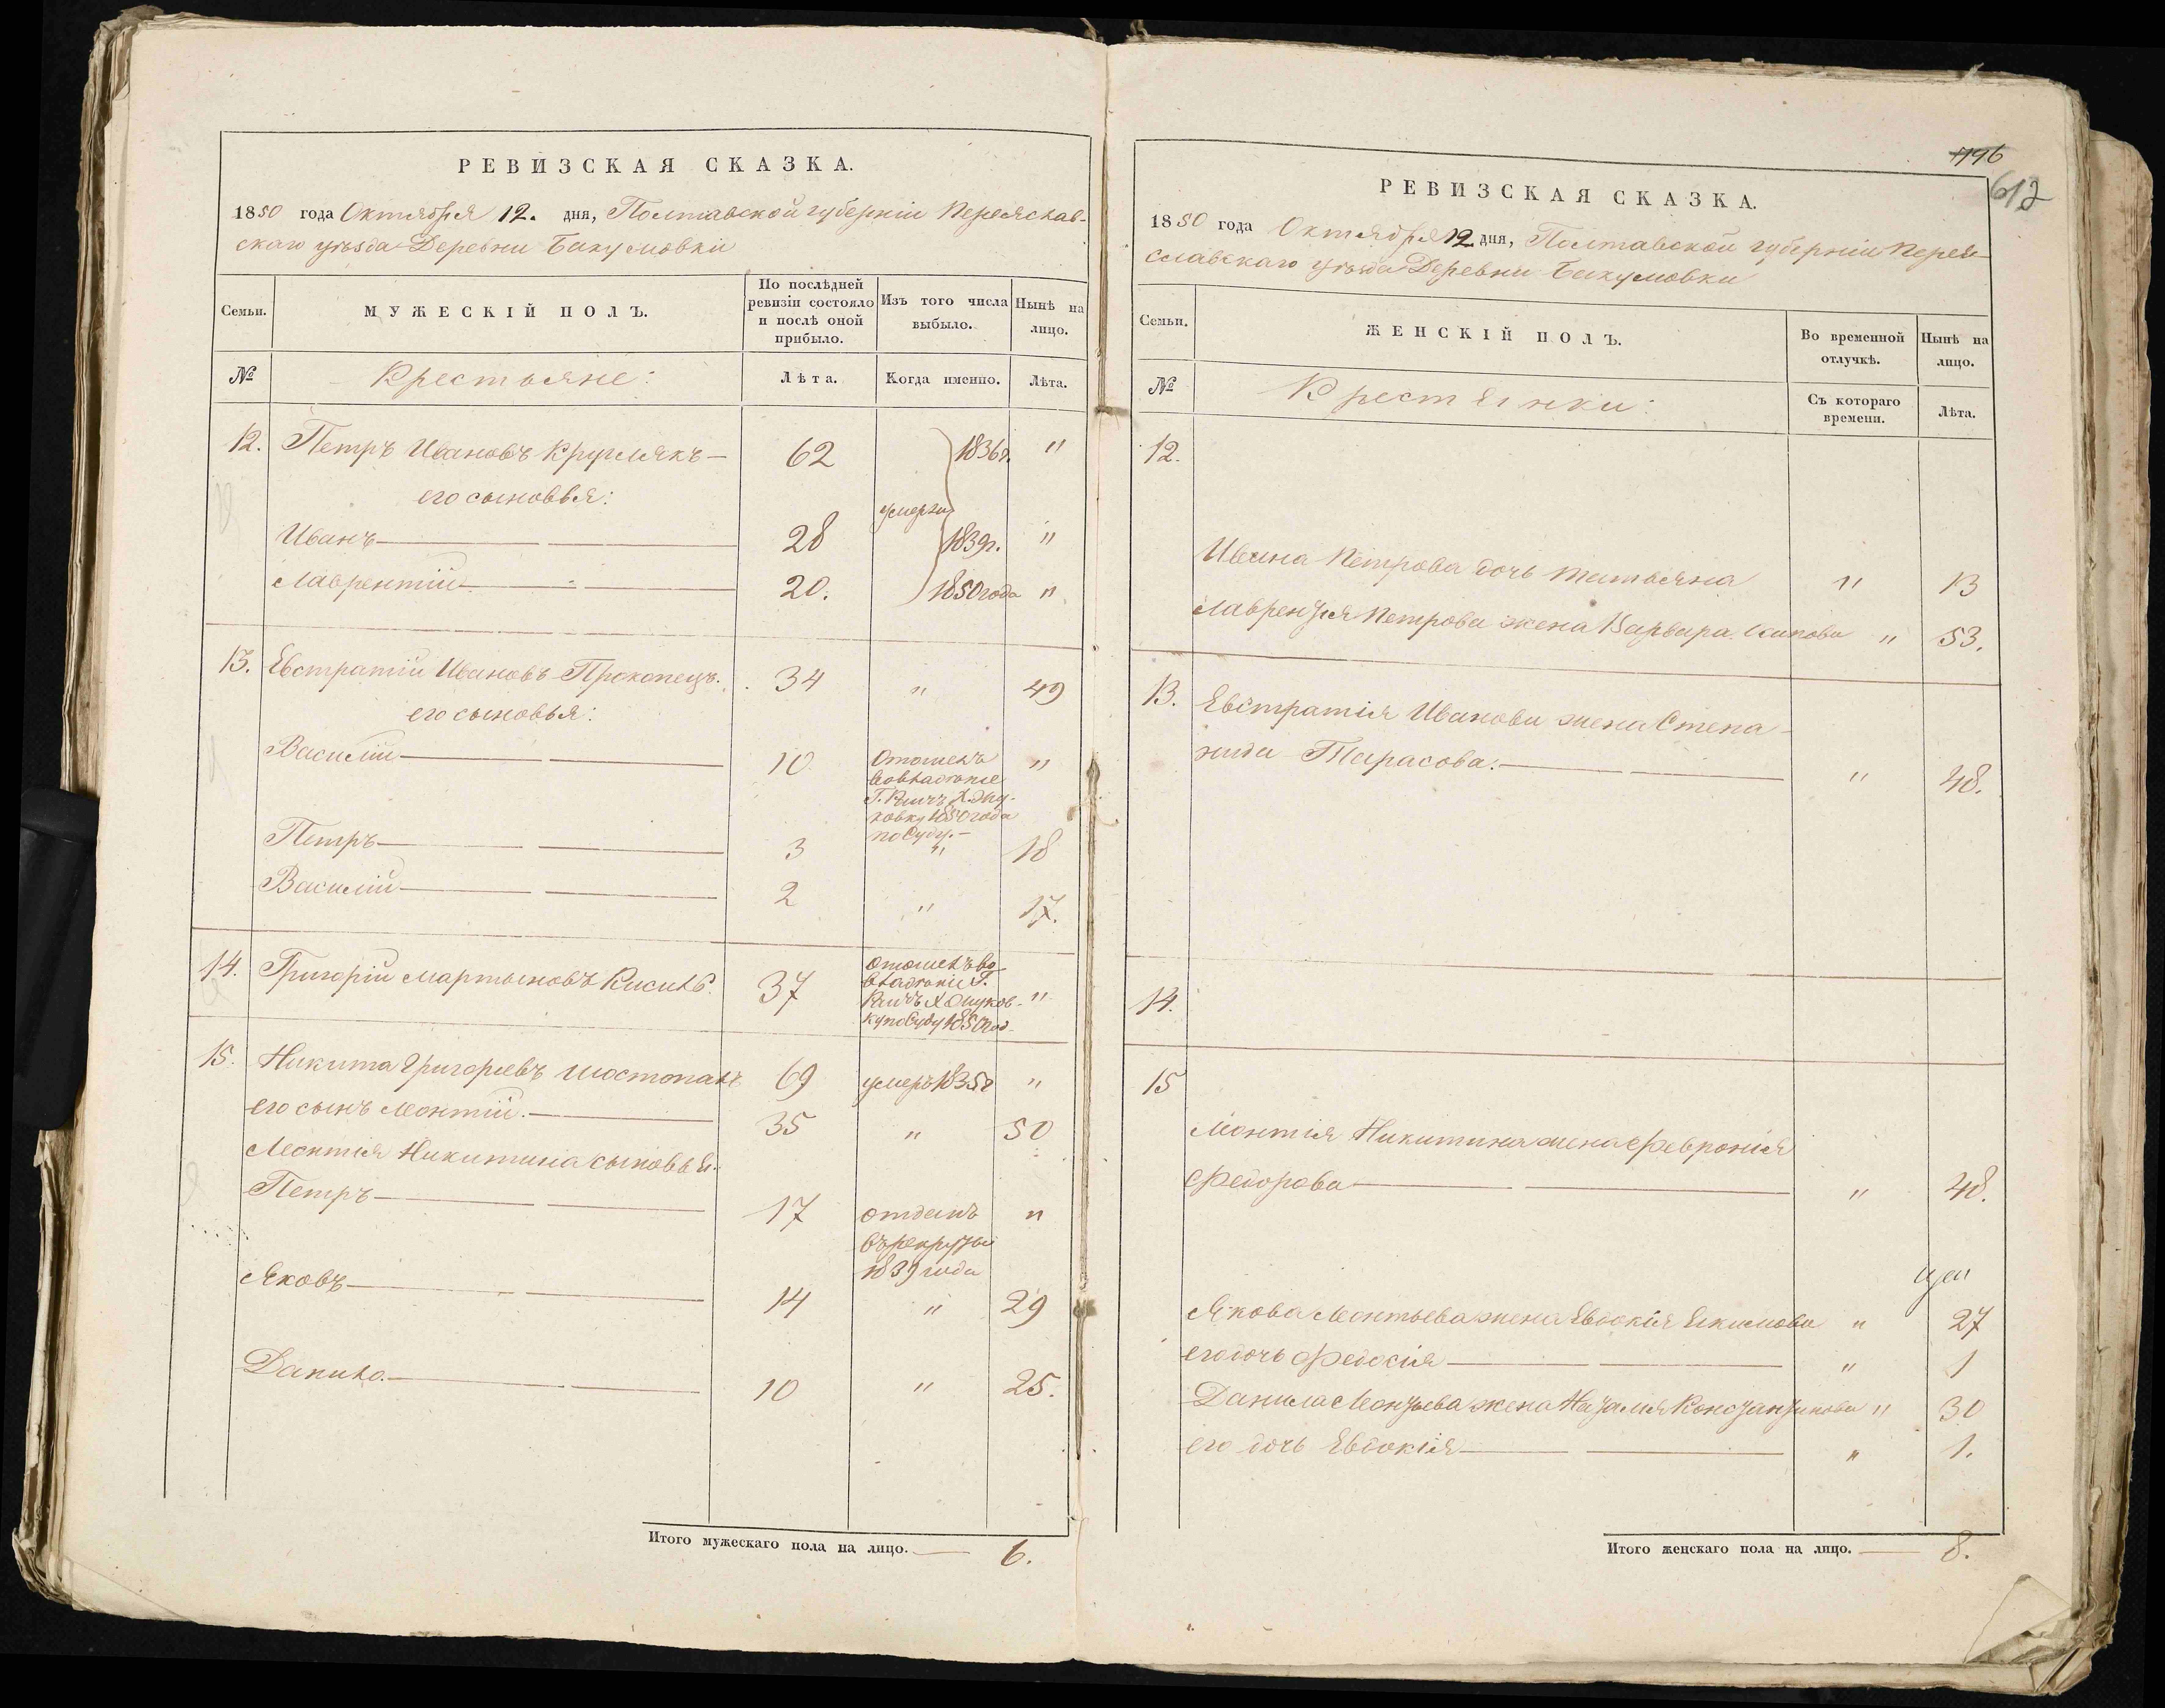 РЕВИЗСКАЯ СКАЗКА.
1850 года Октября 12. дня, Полтавской губерніи Переяслав-
скаго уѣзда Деревни Бакумовки
Семьи.
МУЖЕСКІЙ ПОЛЪ.
По послѣдней
ревизіи состояло
и послѣ оной
прибыло.
Изъ того числа
выбыло.
Нынѣ на
лицо.
№
Крестьяне:
Лѣта.
Когда именно.
Лѣта.
12. Петръ Ивановъ Круглякъ— 62 1836г. "
его сыновья:
умерли
Иванъ— 28 1839г. "
Лаврентій— 20. 1850 года "
13. Евстратій Ивановъ Прокопецъ. 34 " 49
его сыновья:
Василій— 10 отошелъ "
во владѣніе
Г.
1850 года
по Суду.—
Петръ— 3 " 18
Василій— 2 " 17.
14. Григорій Мартыновъ Кисиль. 37 отошелъ во "
владѣніе Г.
по Суду 1850 год
15. Никита Григорьевъ Шостопалъ 69 умеръ 1835г "
его сынъ Леонтій.— 35 " 50
Леонтія Никитина сыновья.
Петръ— 17 отданъ "
въ рекруты
1839 года
Яковъ— 14 " 29
Данило.— 10 " 25.
Итого мужескаго пола на лицо.— 6.
196
612
РЕВИЗСКАЯ СКАЗКА.
1850 года Октября 12 дня, Полтавской губерніи Перея-
славскаго уѣзда Деревни Бакумовки
Семьи.
ЖЕНСКІЙ ПОЛЪ.
Во временной
отлучкѣ.
Нынѣ на
лицо.
№
Крестьянки:
Съ котораго
времени.
Лѣта.
12.
Ивана Петрова дочь Татьяна " 13
Лаврентія Петрова жена Варвара " 53.
13. Евстратія Иванова жена Степа-
нида Тарасова.— " 48.
14.
15
Леонтія Никитина жена Февронія
Федорова— " 48.
Якова Леонтьева жена Евдокія Екимова " 27
его дочь Федосія— " 1
Данила Леонтьева жена Наталія Константинова " 30
его дочь Евдокія— " 1.
Итого женскаго пола на лицо.— 8.